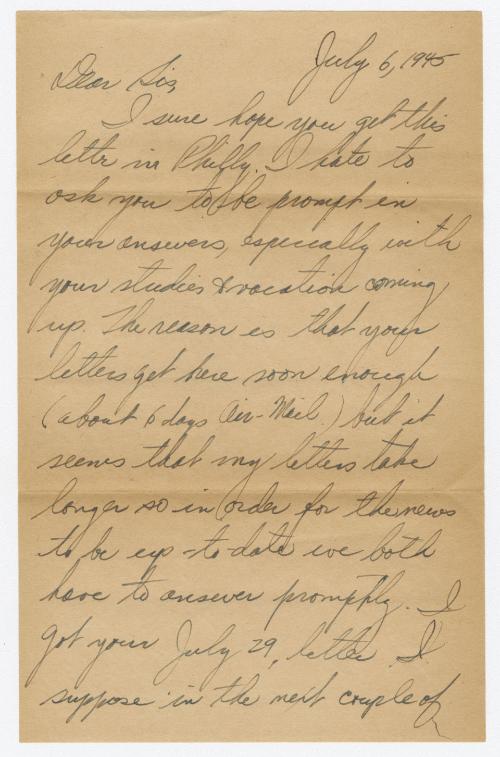 July 6, 1945
Dear Sis,
I sure hope you get this
letter in Philly. I hate to
ask you to be prompt in
your answers, especially with
your studies & vacation coming
up. The reason is that your
letters get here soon enough
(about 6 days Air-Mail.) but it
seems that my letters take
longer so in order for the news
to be up-to-date we both
have to answer promptly. I
got your July 29, letter. I
suppose in the next couple of